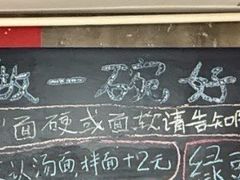 做一碗,好
面硬或面软请告知
以汤面,拌面+2元
红